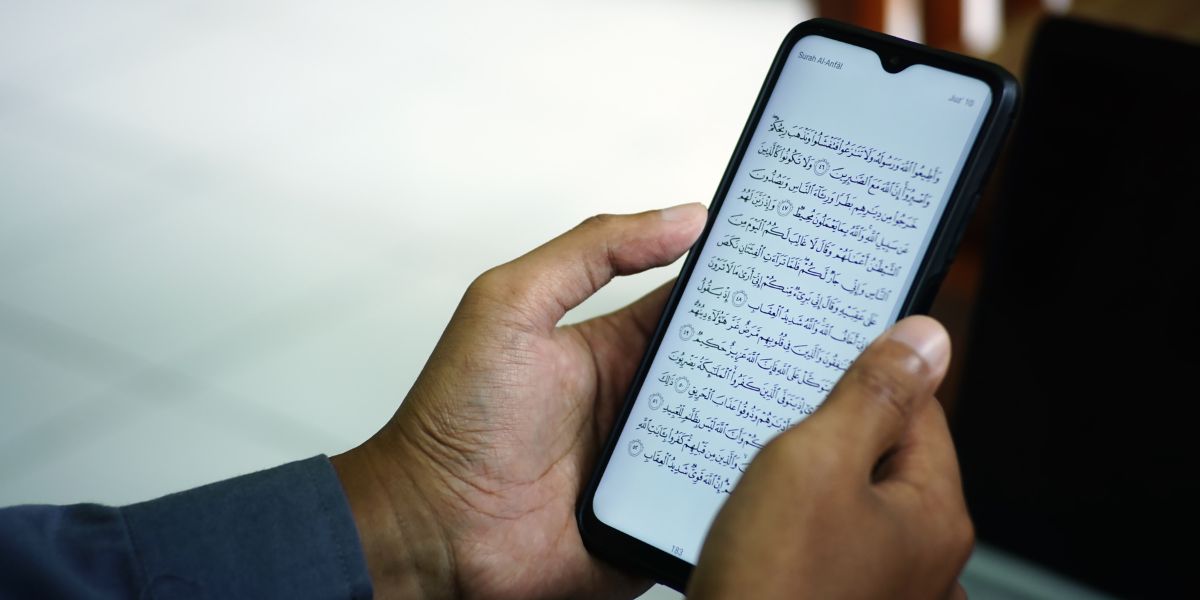 Surah Al-Anfāl
Juz' 10
وَأَطِيعُوا۟ ٱللَّهَ وَرَسُولَهُۥ وَلَا تَنَٰزَعُوا۟ فَتَفْشَلُوا۟ وَتَذْهَبَ رِيحُكُمْ ۖ
وَٱصْبِرُوٓا۟ ۚ إِنَّ ٱللَّهَ مَعَ ٱلصَّٰبِرِينَ ٤٦ وَلَا تَكُونُوا۟ كَٱلَّذِينَ
خَرَجُوا۟ مِن دِيَٰرِهِم بَطَرًا وَرِئَآءَ ٱلنَّاسِ وَيَصُدُّونَ
عَن سَبِيلِ ٱللَّهِ ۚ وَٱللَّهُ بِمَا يَعْمَلُونَ مُحِيطٌ ٤٧ وَإِذْ زَيَّنَ لَهُمُ
ٱلشَّيْطَٰنُ أَعْمَٰلَهُمْ وَقَالَ لَا غَالِبَ لَكُمُ ٱلْيَوْمَ مِنَ
ٱلنَّاسِ وَإِنِّى جَارٌ لَّكُمْ ۖ فَلَمَّا تَرَآءَتِ ٱلْفِئَتَانِ نَكَصَ
عَلَىٰ عَقِبَيْهِ وَقَالَ إِنِّى بَرِىٓءٌ مِّنكُمْ إِنِّىٓ أَرَىٰ مَا لَا تَرَوْنَ
إِنِّىٓ أَخَافُ ٱللَّهَ ۚ وَٱللَّهُ شَدِيدُ ٱلْعِقَابِ ٤٨ إِذْ يَقُولُ
وَٱلَّذِينَ فِى قُلُوبِهِم مَّرَضٌ غَرَّ هَٰٓؤُلَآءِ دِينُهُمْ ۗ
عَلَى ٱللَّهِ فَإِنَّ ٱللَّهَ عَزِيزٌ حَكِيمٌ ٤٩
إِذْ يَتَوَفَّى ٱلَّذِينَ كَفَرُوا۟ ۙ ٱلْمَلَٰٓئِكَةُ يَضْرِبُونَ
وَذُوقُوا۟ عَذَابَ ٱلْحَرِيقِ ٥٠ ذَٰلِكَ
وَأَنَّ ٱللَّهَ لَيْسَ بِظَلَّٰمٍ لِّلْعَبِيدِ ٥١
وَٱلَّذِينَ مِن قَبْلِهِمْ ۚ كَفَرُوا۟ بِـَٔايَٰتِ ٱللَّهِ
إِنَّ ٱللَّهَ قَوِىٌّ شَدِيدُ ٱلْعِقَابِ ٥٢
183